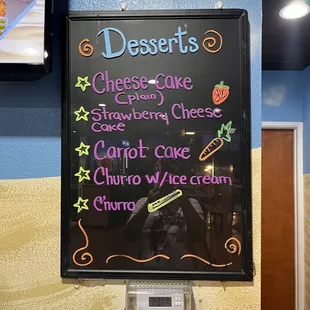 Desserts
Cheese cake
(plain)
Strawberry Cheese
Cake
Carrot cake
Churro w/ice cream
Churro